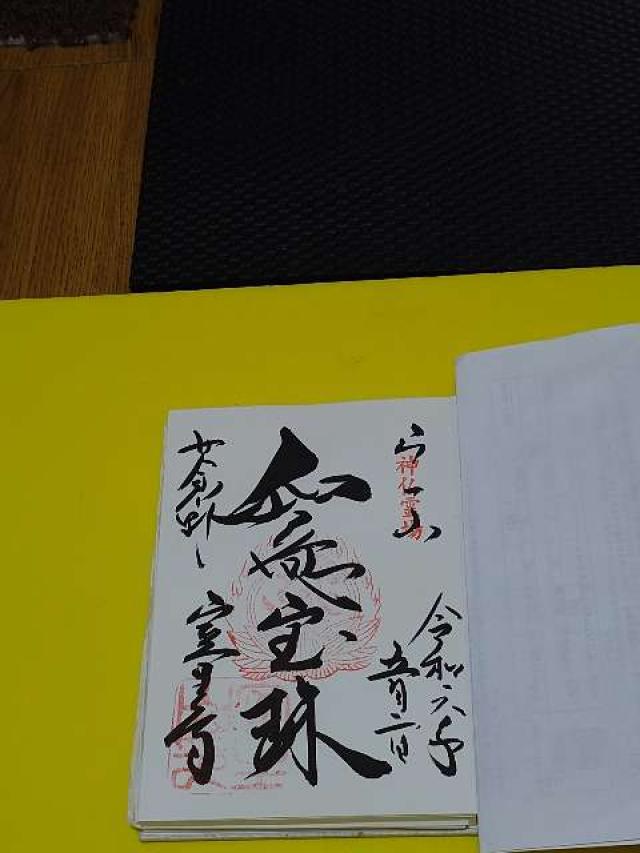 神仏霊場
令和六年
五月二日
如意宝珠
女人高野
室生寺